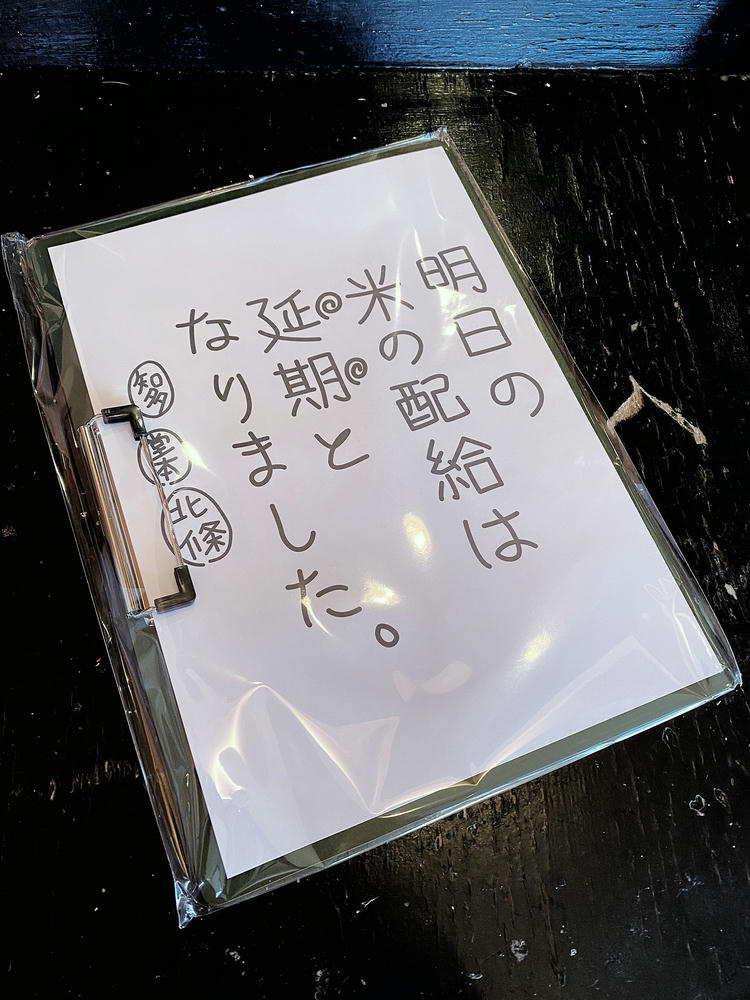 明日の
米の配給は
延期と
なりました。
知多
堂本
北條